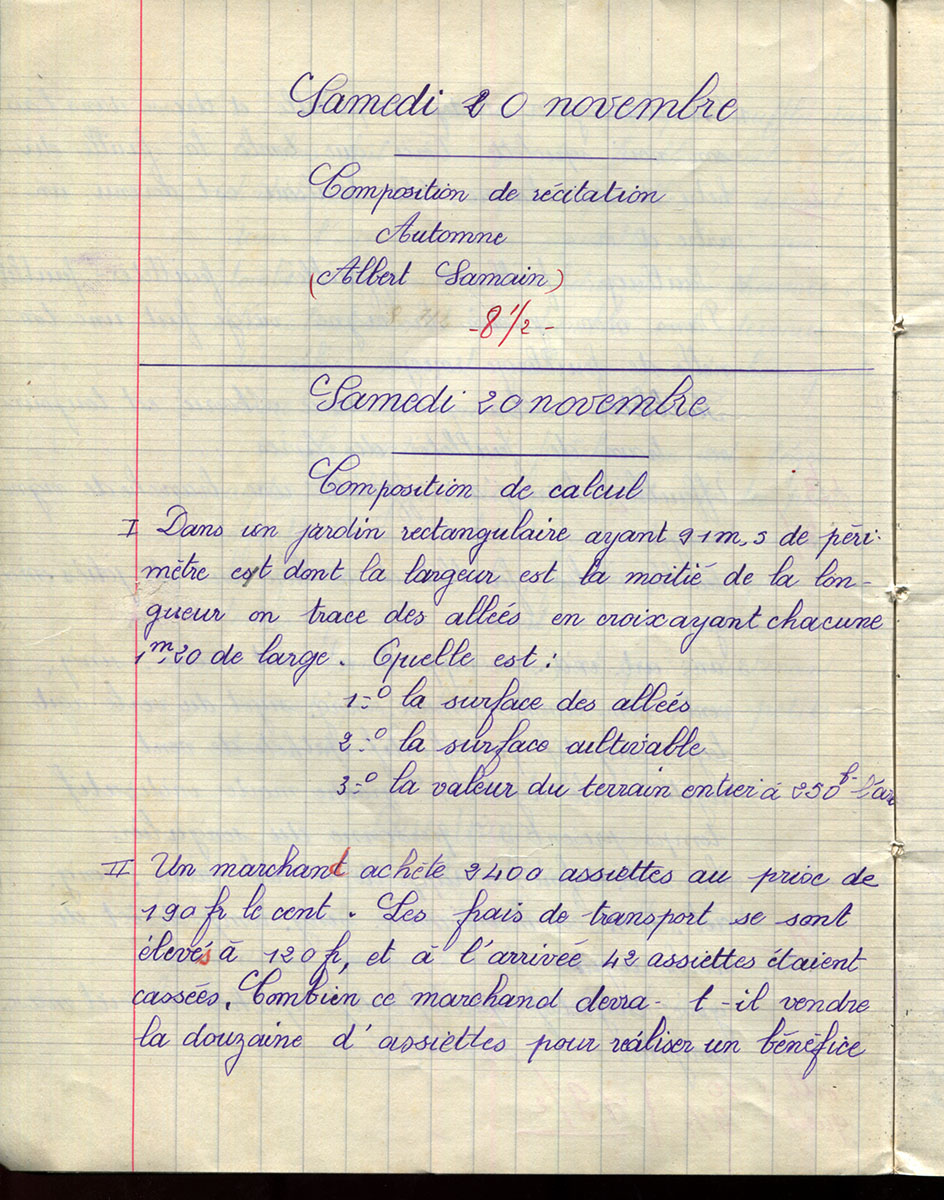 Samedi 20 novembre
Composition de récitation
Automne
(Albert Samain)
-8 1/2-
Samedi 20 novembre
Composition de calcul
I Dans un jardin rectangulaire ayant 91m,5 de péri-
mètre et dont la largeur est la moitié de la lon-
gueur on trace des alleés en croix ayant chacune
1m,20 de large. Quelle est :
1=º la surface des alleés
2=º la surface cultivable
3=º la valeur du terrain entier à 250f l'are
II Un marchand achète 2400 assiettes au prix de
190 fr le cent. Les frais de transport se sont
élevés à 120 f, et à l'arrivée 42 assiettes étaient
casseés. Combien ce marchand devra-t-il vendre
la douzaine d'assiettes pour réaliser un bénéfice